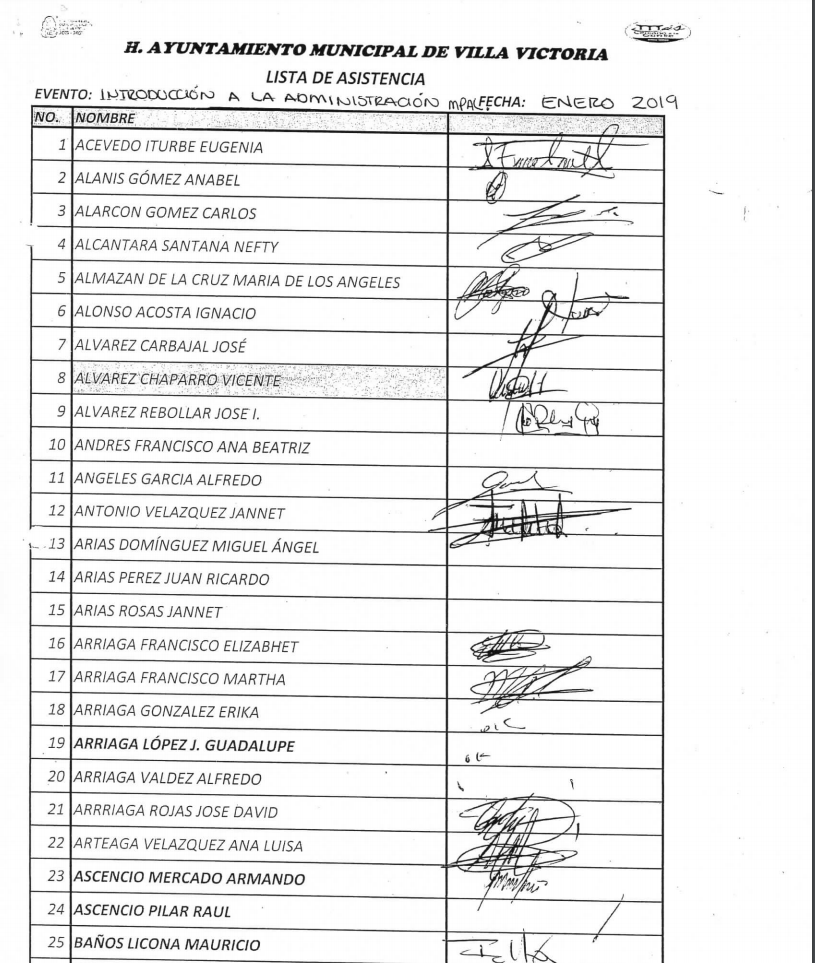 H. AYUNTAMIENTO MUNICIPAL DE VILLA VICTORIA
LISTA DE ASISTENCIA
EVENTO: INTRODUCCIÓN A LA ADMINISTRACIÓN MPAL. FECHA: ENERO 2019
NO. NOMBRE
1 ACEVEDO ITURBE EUGENIA
2 ALANIS GÓMEZ ANABEL
3 ALARCON GOMEZ CARLOS
4 ALCANTARA SANTANA NEFTY
5 ALMAZAN DE LA CRUZ MARIA DE LOS ANGELES
6 ALONSO ACOSTA IGNACIO
7 ALVAREZ CARBAJAL JOSÉ
8 ALVAREZ CHAPARRO VICENTE
9 ALVAREZ REBOLLAR JOSE I.
10 ANDRES FRANCISCO ANA BEATRIZ
11 ANGELES GARCIA ALFREDO
12 ANTONIO VELAZQUEZ JANNET
13 ARIAS DOMÍNGUEZ MIGUEL ÁNGEL
14 ARIAS PEREZ JUAN RICARDO
15 ARIAS ROSAS JANNET
16 ARRIAGA FRANCISCO ELIZABHET
17 ARRIAGA FRANCISCO MARTHA
18 ARRIAGA GONZALEZ ERIKA
19 ARRIAGA LÓPEZ J. GUADALUPE
20 ARRIAGA VALDEZ ALFREDO
21 ARRRIAGA ROJAS JOSE DAVID
22 ARTEAGA VELAZQUEZ ANA LUISA
23 ASCENCIO MERCADO ARMANDO
24 ASCENCIO PILAR RAUL
25 BAÑOS LICONA MAURICIO